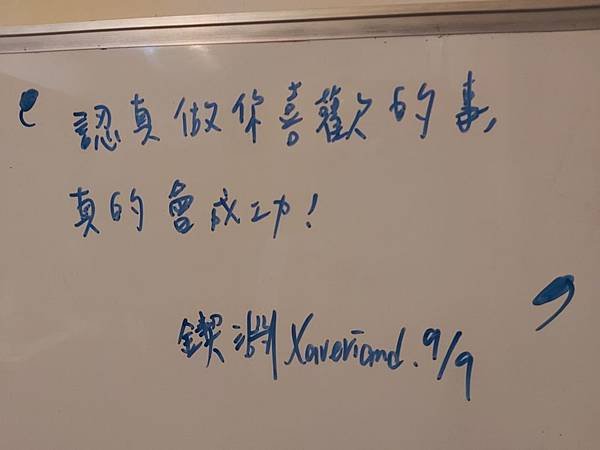 認真做你喜歡的事,
真的會成功!
鍥淵 Xaveriand. 9/9